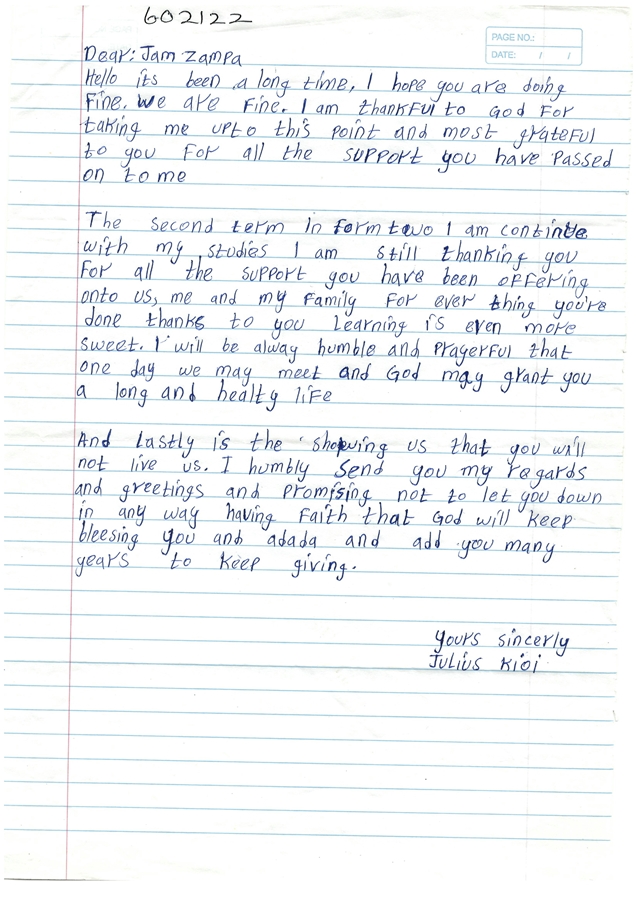 602122
PAGE NO.:
DATE: / /
Dear: Jam Zampa
Hello its been a long time, I hope you are doing
Fine. We are Fine. I am thankful to God For
taking me upto this point and most grateful
to you For all the support you have passed
on to me
The second term in form two I am continue
with my studies I am still thanking you
For all the support you have been offering
onto us, me and my Family For ever thing you're
done thanks to you Learning is even more
sweet. I will be alway humble and prayerful that
one day we may meet and God may grant you
a long and healty life
And Lastly is the showing us that you will
not live us. I humbly Send you my regards
and greetings and promising not to let you down
in any way having Faith that God will keep
bleesing you and adada and add you many
years to keep giving.
Yours sincerly
Julius Kioi